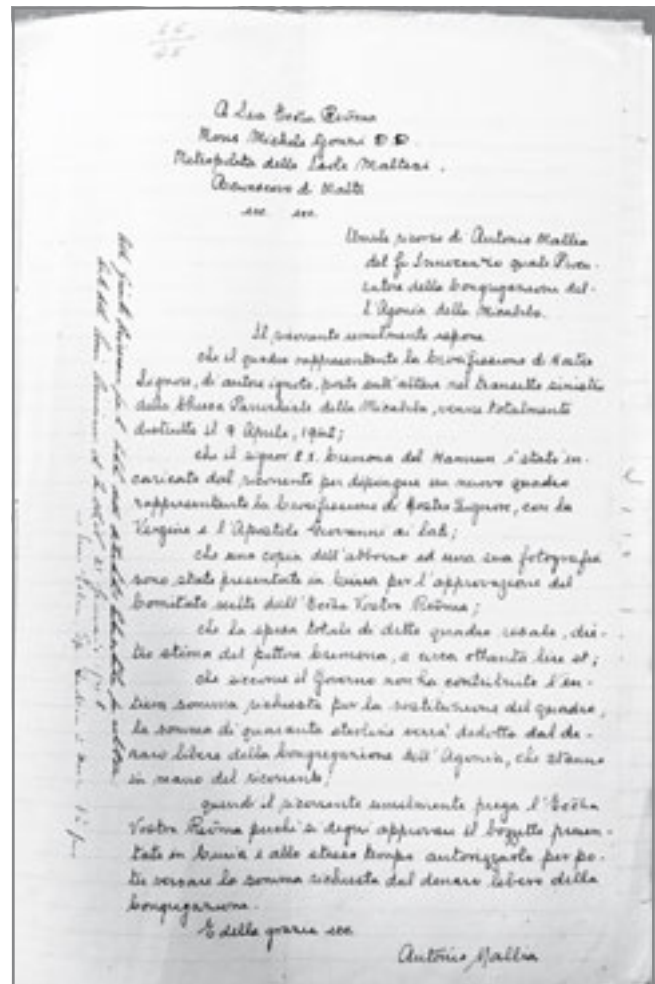 A Sua Ecc̄za Rev̄ma
Mons Michele Gonzi D. D.
Metropolita delle Isole Maltesi.
Arcivescovo di Malta
ecc. ecc.
Umile ricorso di Antonio Mallia
del fu Innocenzo quale Procu-
ratore della Congregazione del-
l'Agonia della Micabiba.
Il ricorrente umilmente espone
che il quadro rappresentante la Crocifissione di Nostro
Signore, di autore ignoto, posto sull'altare nel transetto sinistro
della Chiesa Parrocchiale della Micabiba, venne totalmente
distrutto il 9 Aprile, 1942;
che il signor E. V. Cremona del Hamrun è stato in-
caricato dal ricorrente per dipingere un nuovo quadro
rappresentante la Crocifissione di Nostro Signore, con la
Vergine e l'Apostolo Giovanni ai lati;
che una copia dell'abbozzo ed una sua fotografia
sono state presentate in Curia per l'approvazione del
Comitato scelto dall'Ecc̄za Vostra Rev̄ma;
che la spesa totale di detto quadro risale, die-
tro stima del pittore Cremona, a circa ottanta lire st;
che siccome il Governo non ha contribuito l'en-
tiera somma richiesta per la sostituzione del quadro,
la somma di quaranta sterline verrà dedotta dal de-
naro libero della Congregazione dell'Agonia, che stanno
in mano del ricorrente;
quindi il ricorrente umilmente prega l'Ecc̄za
Vostra Rev̄ma perchè si degni approvare il bozzetto presen-
tato in Curia e allo stesso tempo autorizzarlo per po-
ter versare la somma richiesta dal denaro libero della
Congregazione.
E della grazia ecc.
Antonio Mallia